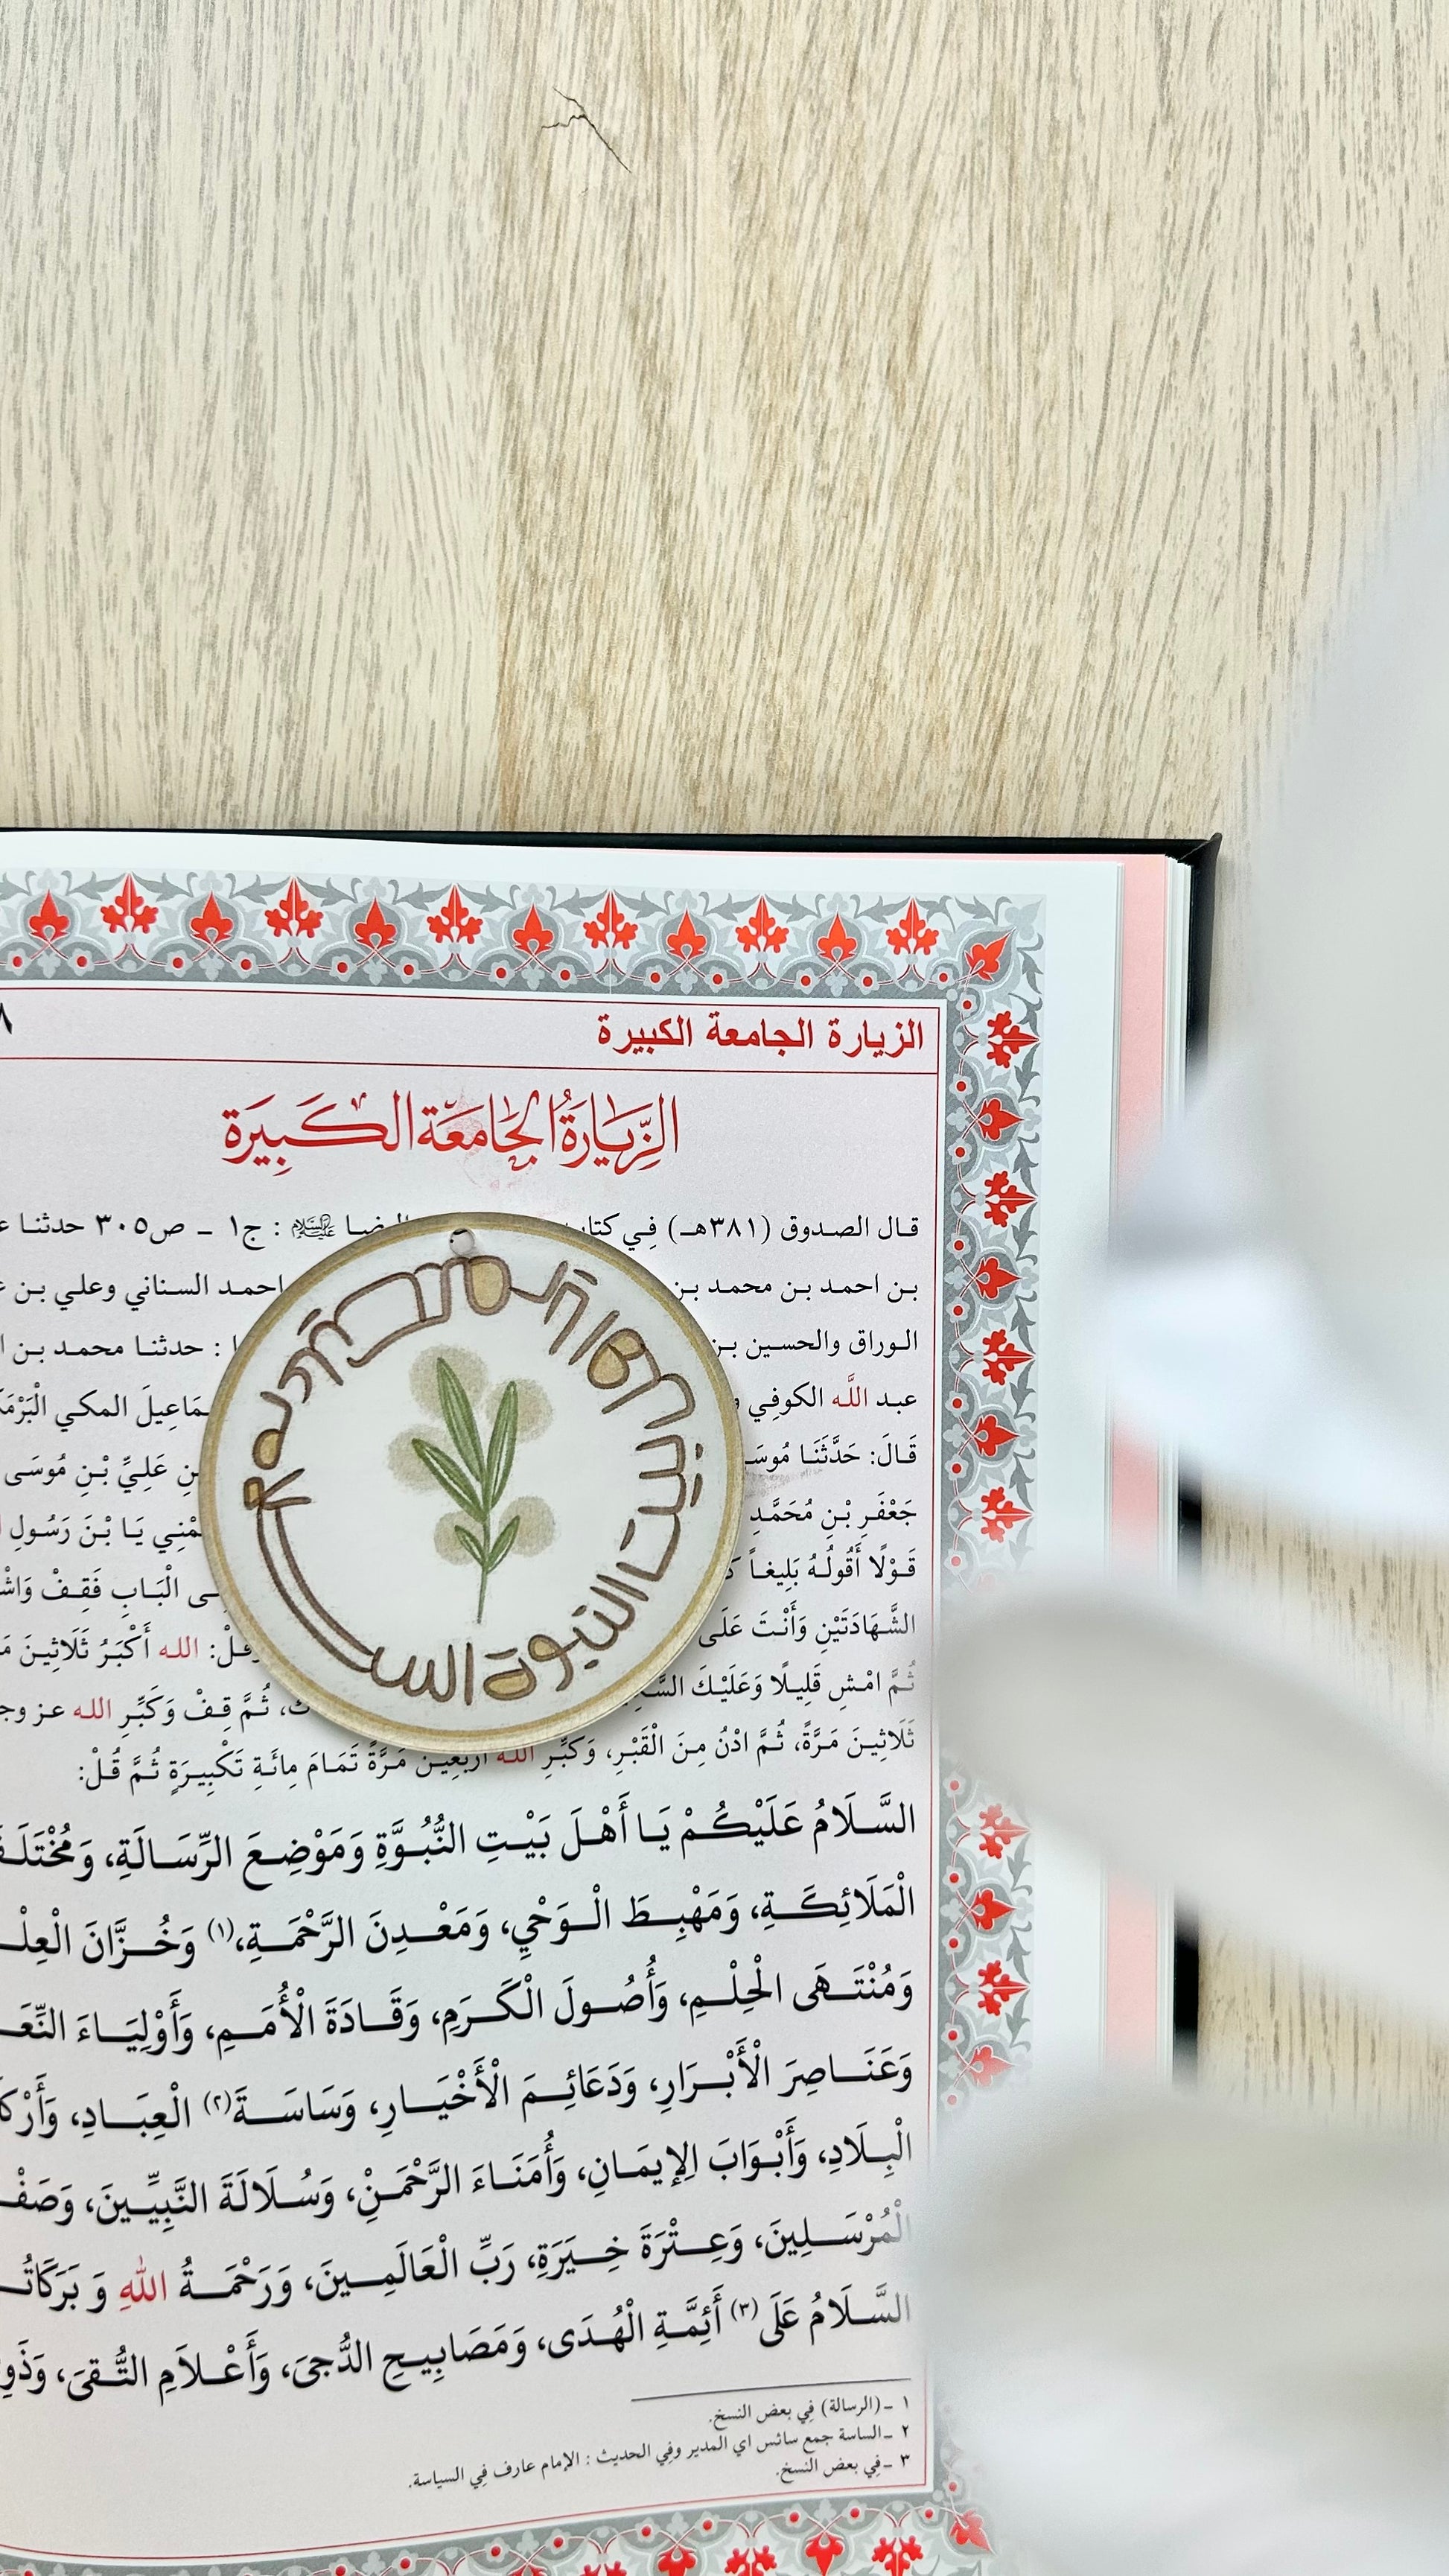 الزيارة الجامعة الكبيرة
٨
الزِّيَارَةُ الجَامِعَة الكَبِيرَة
قال الصدوق (٣٨١هـ) فِي كتاب : ج١ - ص٣٠٥ حدثنا
بن احمد بن محمد بن احمد السناني وعلي بن
الوراق والحسين بن : حدثنا محمد بن
عبد اللَّه الكوفِي المكي
قَالَ: حَدَّثَنَا عَلِيِّ بْنِ مُوسَى
جَعْفَرِ بْنِ مُحَمَّدِ يَا بْنَ رَسُولِ
قَوْلًا أَقُولُهُ بَلِيغاً الْبَابِ فَقِفْ
الشَّهَادَتَيْنِ وَأَنْتَ عَلَى الله أَكْبَرُ ثَلَاثِينَ
ثُمَّ امْشِ قَلِيلًا وَعَلَيْكَ ثُمَّ قِفْ وَكَبِّرِ الله عز
ثَلَاثِينَ مَرَّةً، ثُمَّ ادْنُ مِنَ الْقَبْرِ، وَكَبِّرِ الله أَرْبَعِينَ مَرَّةً تَمَامَ مِائَةِ تَكْبِيرَةٍ ثُمَّ قُلْ:
السلام عليكم يا اهل بيت النبوة
السَّلَامُ عَلَيْكُمْ يَا أَهْلَ بَيْتِ النُّبُوَّةِ وَمَوْضِعَ الرِّسَالَةِ،
الْمَلَائِكَةِ، وَمَهْبِطَ الْوَحْيِ، وَمَعْدِنَ الرَّحْمَةِ،(١) وَخُزَّانَ
وَمُنْتَهَى الْحِلْمِ، وَأُصُولَ الْكَرَمِ، وَقَادَةَ الْأُمَمِ، وَأَوْلِيَاءَ
وَعَنَاصِرَ الْأَبْرَارِ، وَدَعَائِمَ الْأَخْيَارِ، وَسَاسَةَ(٢) الْعِبَادِ،
الْبِلَادِ، وَأَبْوَابَ الإِيمَانِ، وَأُمَنَاءَ الرَّحْمَنْ، وَسُلَالَةَ النَّبِيِّينَ،
الْمُرْسَلِينَ، وَعِتْرَةَ خِيَرَةِ، رَبِّ الْعَالَمِينَ، وَرَحْمَةُ اللهِ وَ
السَّلَامُ عَلَى(٣) أَئِمَّةِ الْهُدَى، وَمَصَابِيحِ الدُّجىَ، وَأَعْلاَمِ التُّقىَ،
١ -(الرسالة) فِي بعض النسخ.
٢ -الساسة جمع سائس اي المدير وفِي الحديث : الإمام عارف فِي السياسة.
٣ -فِي بعض النسخ.